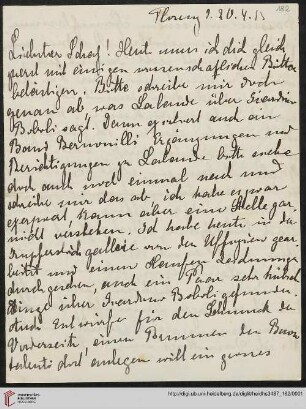 182
Florenz d. 20. 4. 11
Liebster Schatz! Heut muss ich dich gleich
zuerst mit einigen wissenschaftlichen Bitten
belästigen. Bitte schreibe mir doch
genau ab was Lalande über Giardino
Boboli sagt. Dann existiert auch ein
Band Bernouilli Ergänzungen und
Berichtigungen zu Lalande bitte suche
doch auch zwei einmal nach und
schreibe mir das ab, ich habe es zwar
exzerpiert kann aber eine Stelle gar
nicht verstehen. Ich habe heute in der
von den Uffizien gear
beitet und einen Haufen Zeichnungen
durchgesehen, auch ein Paar sehr hübsche
Dinge über Giardino Boboli gefunden
auch Entwürfe für den Schmuck der
Vorderseite, einen Brunnen den Buon
talenti dort anlegen will ein grosses
http://digi.ub.uni-heidelberg.de/diglit/heidhs3487_182/0001